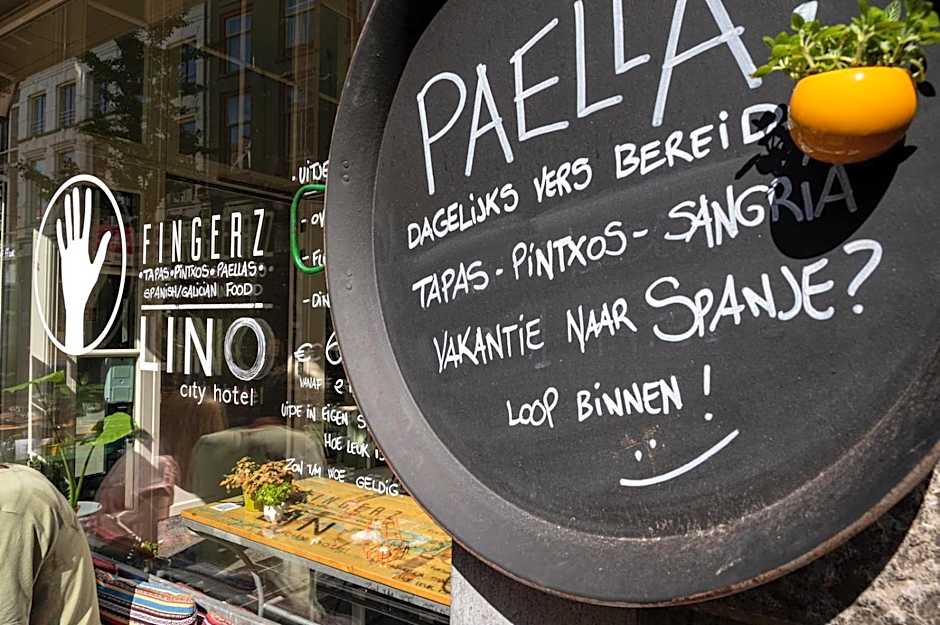 PAELLA
DAGELIJKS VERS BEREID
TAPAS - PINTXOS - SANGRIA
VAKANTIE NAAR SPANJE?
LOOP BINNEN!
FINGERZ
TAPAS·PINTXOS·PAELLAS
SPANISH/GALICIAN FOOD
LINO
city hotel
UITJE
- DIN
€ 6
VANAF
UITJE IN EIGEN S
HOE LEUK IS
ZON T/M WOE GELDIG
FINGERZ
LINO